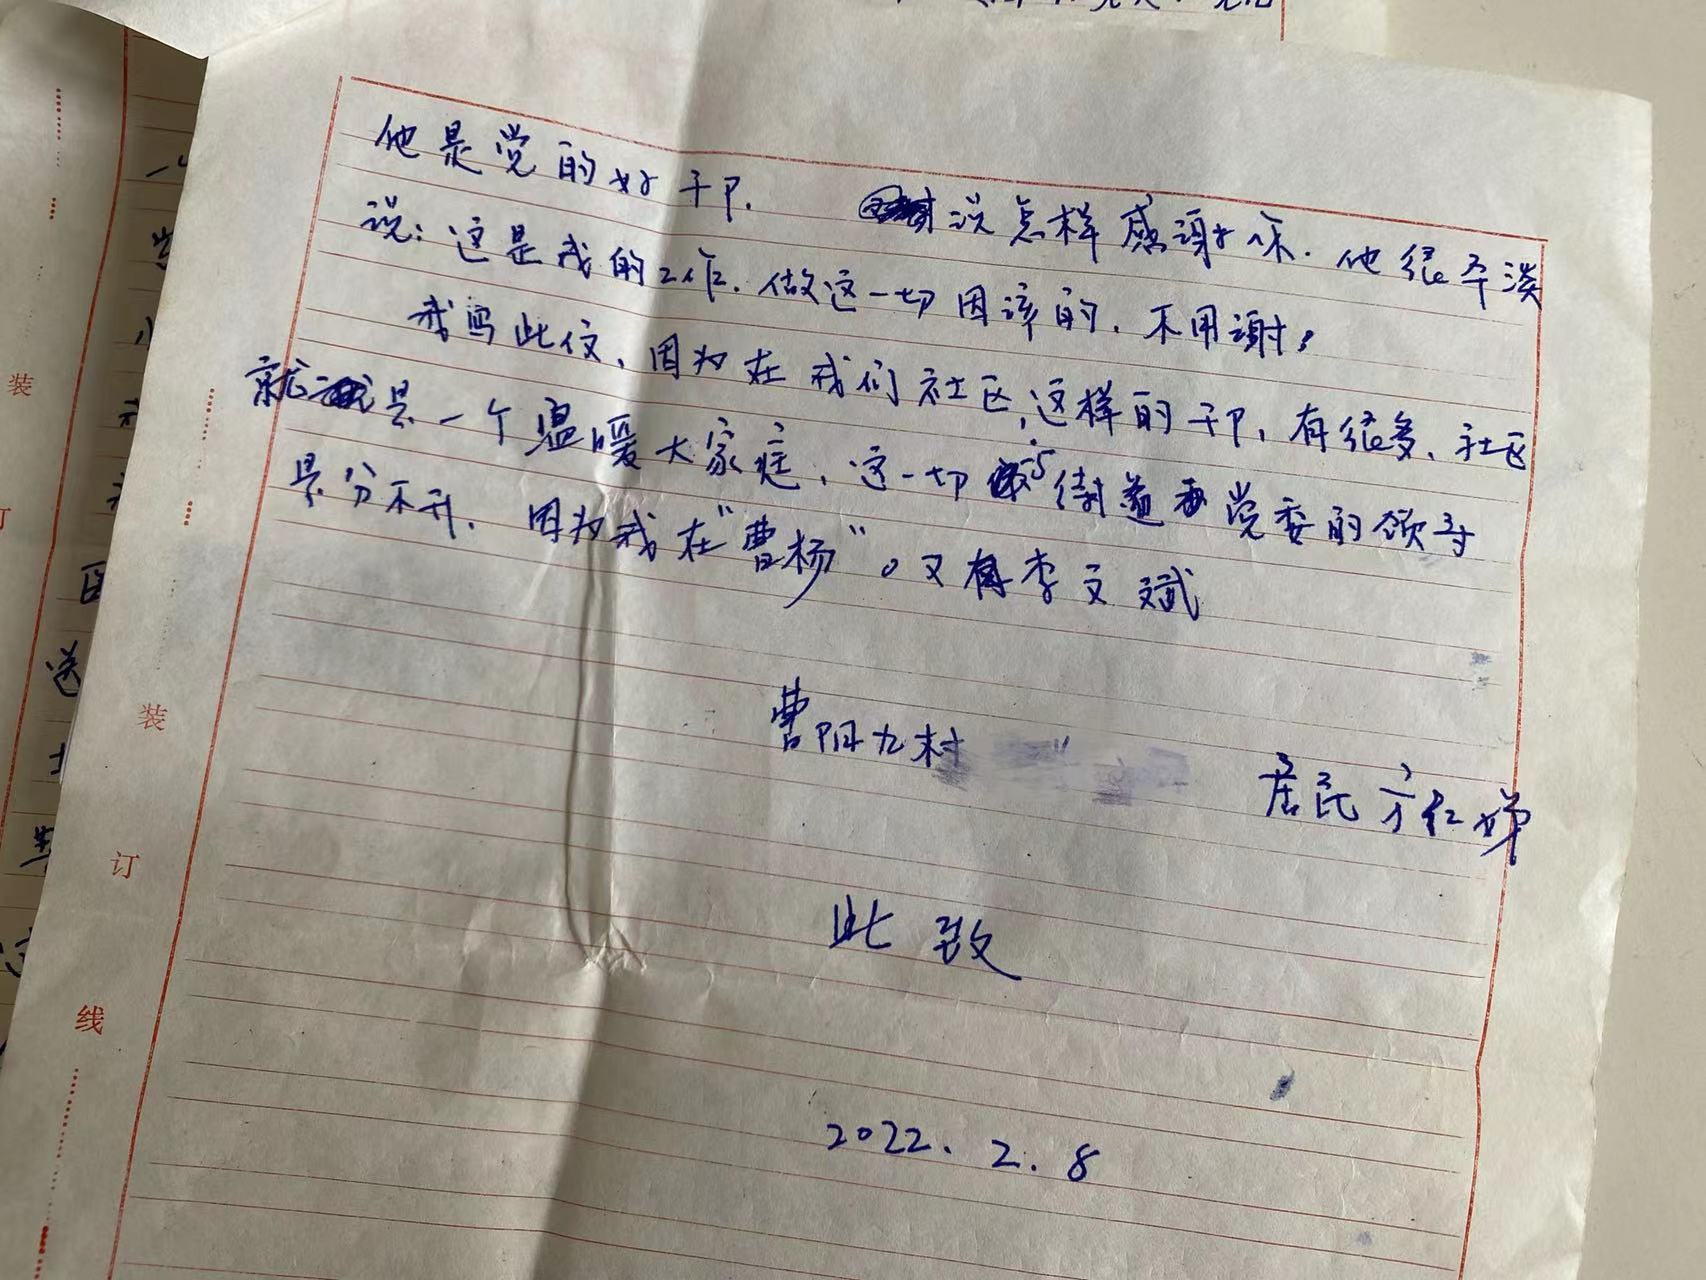 他是党的好干卩. 说怎样感谢你. 他很平淡
说:这是我的工作. 做这一切因该的, 不用谢,
我写此信, 因为在我们社区,这样的干卩, 有很多、社区
就是一个温暖大家庭, 这一切与街道党委的领导
是分不开. 因为我在"曹杨"。又有李文斌
曹阳九村
居民 方红娣
此致
2022.2.8
装
订
线
装
送